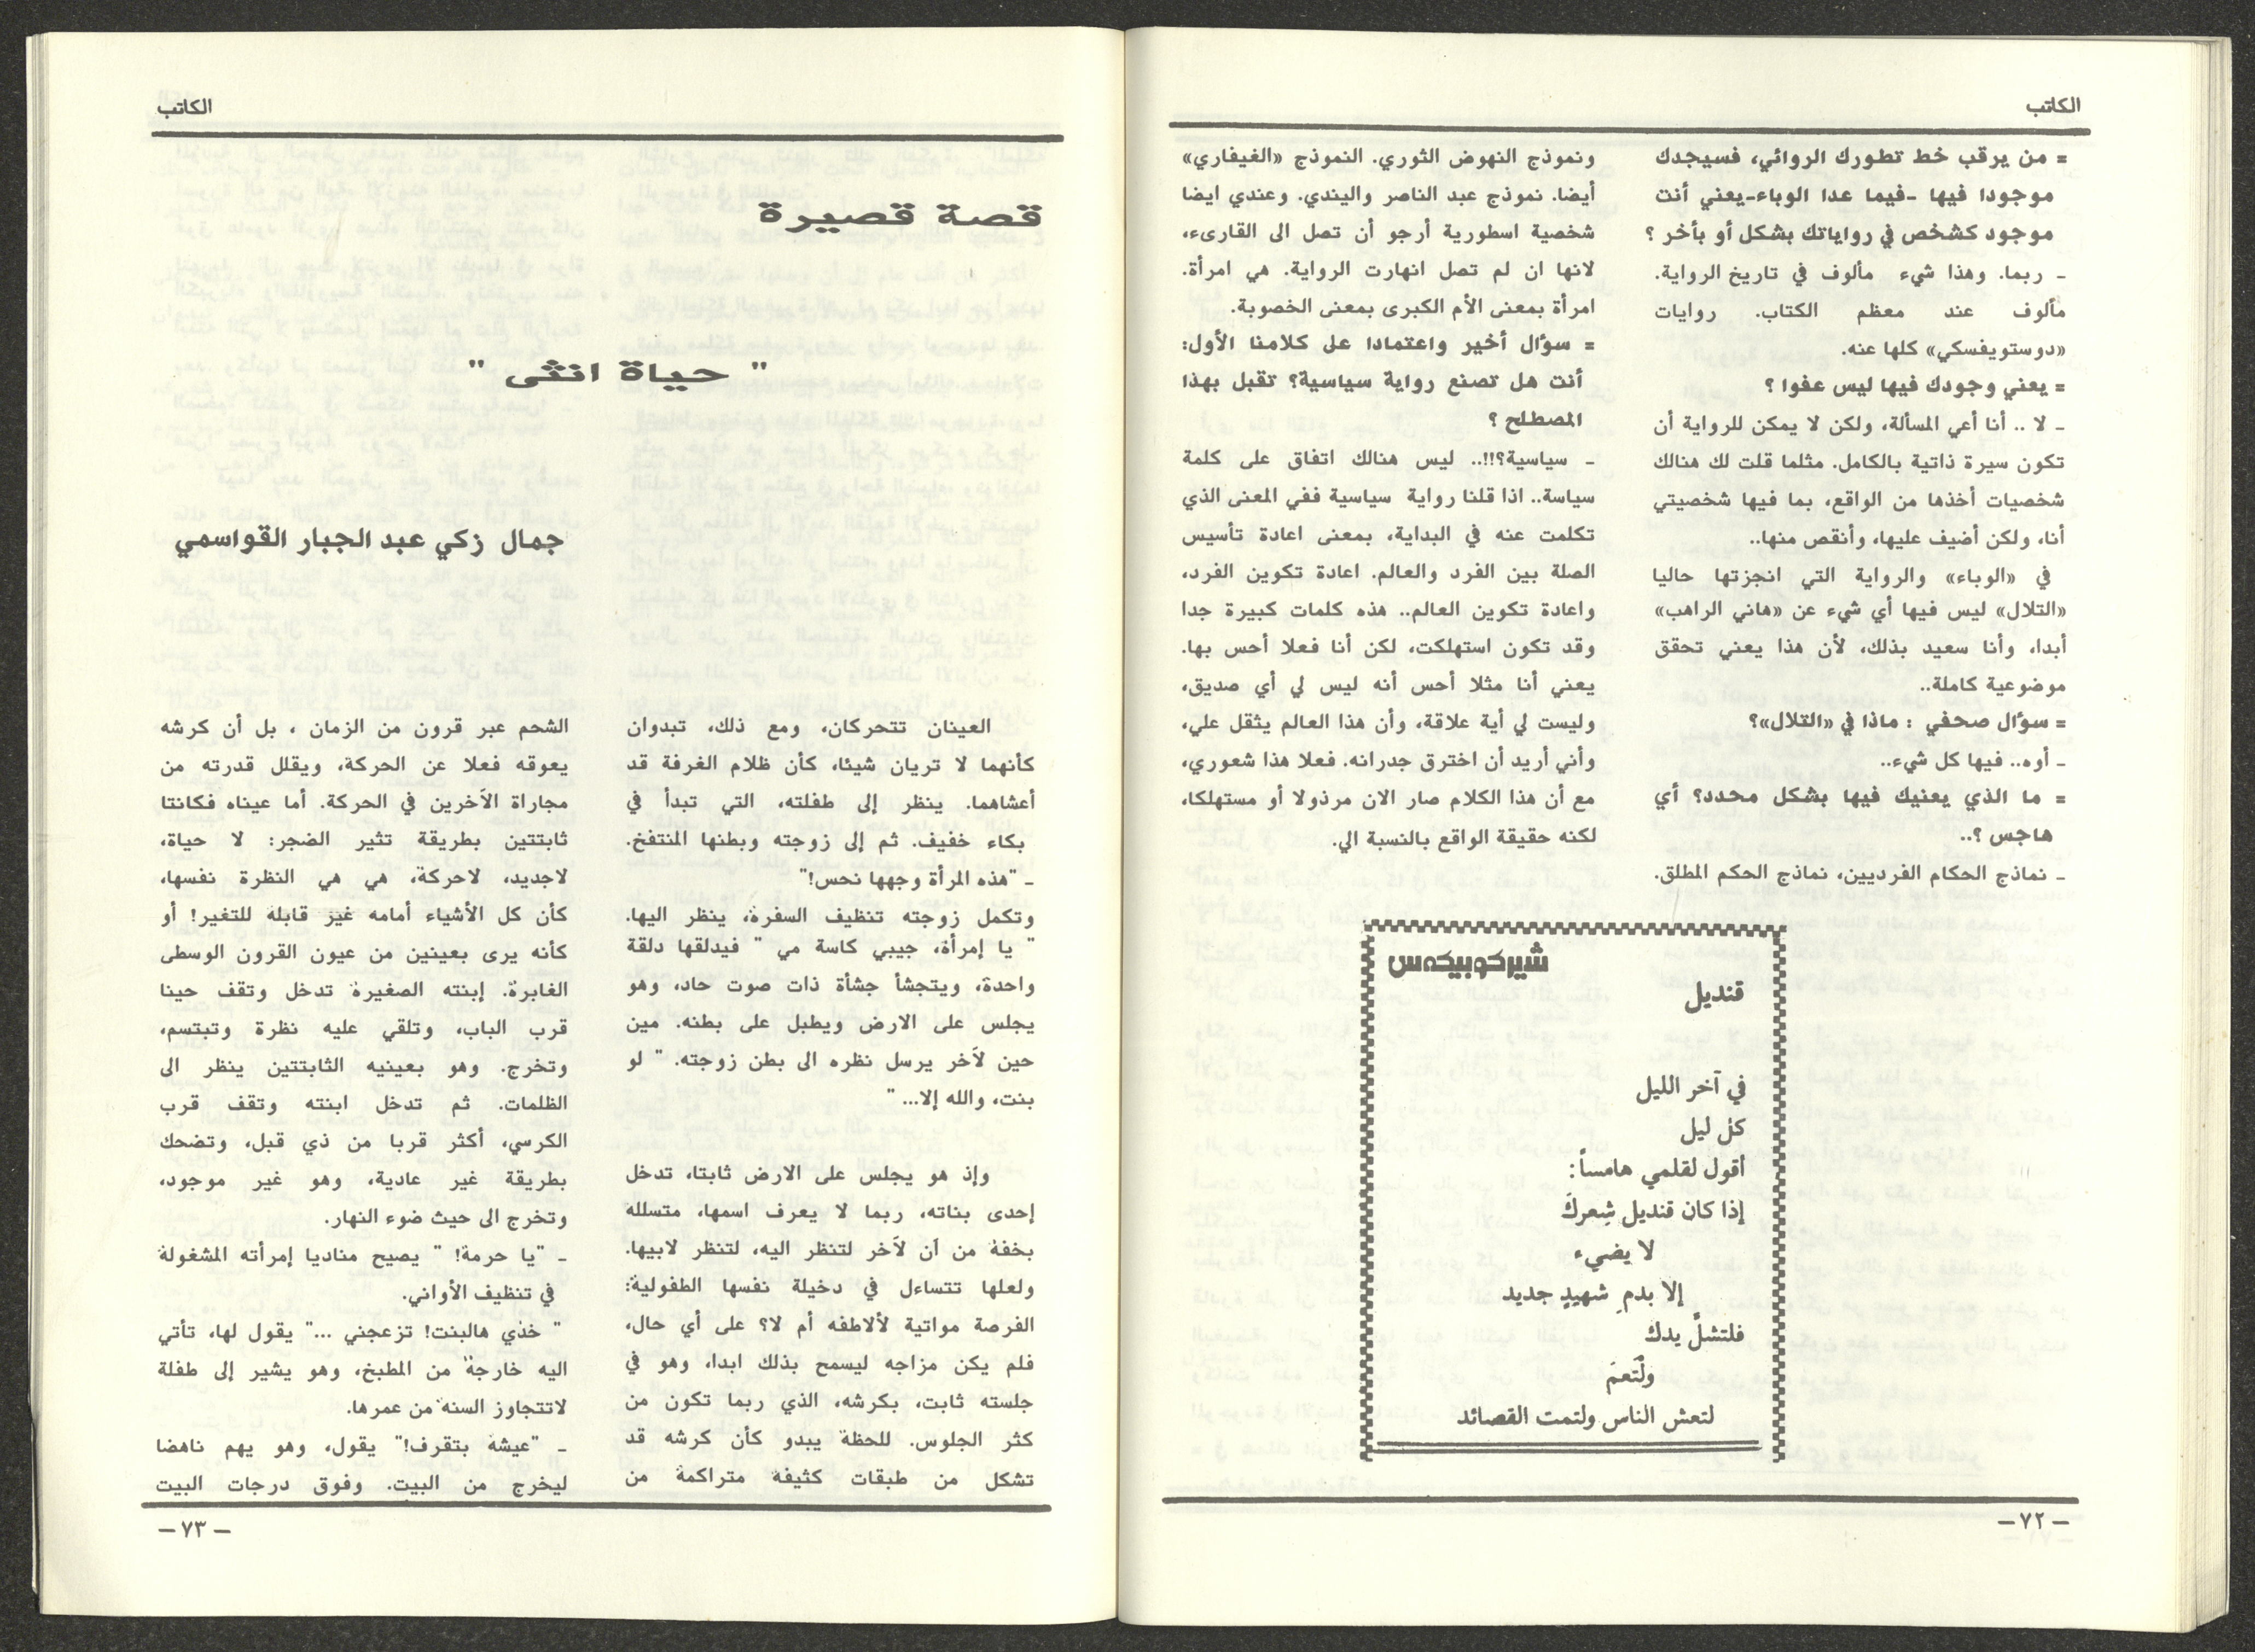 الكاتب
= من يرقب خط تطورك الروائي، فسيجدك
موجودا فيها -فيما عدا الوباء-يعني أنت
موجود كشخص في رواياتك بشكل أو بأخر ؟
- ربما. وهذا شيء مألوف في تاريخ الرواية.
مألوف عند معظم الكتاب. روايات
«دوستويفسكي» كلها عنه.
= يعني وجودك فيها ليس عفوا ؟
- لا .. أنا أعي المسألة، ولكن لا يمكن للرواية أن
تكون سيرة ذاتية بالكامل. مثلما قلت لك هنالك
شخصيات أخذها من الواقع، بما فيها شخصيتي
أنا، ولكن أضيف عليها، وأنقص منها..
في «الوباء» والرواية التي انجزتها حاليا
«التلال» ليس فيها أي شيء عن «هاني الراهب»
أبدا، وأنا سعيد بذلك، لأن هذا يعني تحقق
موضوعية كاملة..
= سؤال صحفي : ماذا في «التلال»؟
- أوه.. فيها كل شيء..
= ما الذي يعنيك فيها بشكل محدد؟ أي
هاجس ؟..
- نماذج الحكام الفرديين، نماذج الحكم المطلق.
ونموذج النهوض الثوري. النموذج «الغيفاري»
أيضا. نموذج عبد الناصر واليندي. وعندي ايضا
شخصية اسطورية أرجو أن تصل الى القارىء،
لانها ان لم تصل انهارت الرواية. هي امرأة.
امرأة بمعنى الأم الكبرى بمعنى الخصوبة.
= سؤال أخير واعتمادا على كلامنا الأول:
أنت هل تصنع رواية سياسية؟ تقبل بهذا
المصطلح ؟
- سياسية؟!!.. ليس هنالك اتفاق على كلمة
سياسة.. اذا قلنا رواية سياسية ففي المعنى الذي
تكلمت عنه في البداية، بمعنى اعادة تأسيس
الصلة بين الفرد والعالم. اعادة تكوين الفرد،
واعادة تكوين العالم.. هذه كلمات كبيرة جدا
وقد تكون استهلكت، لكن أنا فعلا أحس بها.
يعني أنا مثلا أحس أنه ليس لي أي صديق،
وليست لي أية علاقة، وأن هذا العالم يثقل علي،
وأني أريد أن اخترق جدرانه. فعلا هذا شعوري،
مع أن هذا الكلام صار الان مرذولا أو مستهلكا،
لكنه حقيقة الواقع بالنسبة الي.
شيركوبيكه‌س
قنديل
في آخر الليل
كل ليل
أقول لقلمي هامساً:
إذا كان قنديل شِعركَ
لا يضيء
إلا بدمِ شهيدٍ جديد
فلتشلَّ يدك
ولْتَعمَ
لتعش الناس ولتمت القصائد
- ٧٢ -
الكاتب
قصة قصيرة
" حياة انثى "
جمال زكي عبد الجبار القواسمي
العينان تتحركان، ومع ذلك، تبدوان
كأنهما لا تريان شيئا، كأن ظلام الغرفة قد
أعشاهما. ينظر إلى طفلته، التي تبدأ في
بكاء خفيف. ثم إلى زوجته وبطنها المنتفخ.
- "هذه المرأة وجهها نحس!"
وتكمل زوجته تنظيف السفرة، ينظر اليها.
" يا إمرأة، جيبي كاسة مي " فيدلقها دلقة
واحدة، ويتجشأ جشأة ذات صوت حاد، وهو
يجلس على الارض ويطبل على بطنه. مين
حين لآخر يرسل نظره الى بطن زوجته. " لو
بنت، والله إلا... "
وإذ هو يجلس على الارض ثابتا، تدخل
إحدى بناته، ربما لا يعرف اسمها، متسلله
بخفة من آن لآخر لتنظر اليه، لتنظر لابيها.
ولعلها تتساءل في دخيلة نفسها الطفولية:
الفرصة مواتية لألاطفه أم لا؟ على أي حال،
فلم يكن مزاجه ليسمح بذلك ابدا، وهو في
جلسته ثابت، بكرشه، الذي ربما تكون من
كثر الجلوس. للحظة يبدو كأن كرشه قد
تشكل من طبقات كثيفة متراكمة من
الشحم عبر قرون من الزمان ، بل أن كرشه
يعوقه فعلا عن الحركة، ويقلل قدرته من
مجاراة الآخرين في الحركة. أما عيناه فكانتا
ثابتتين بطريقة تثير الضجر: لا حياة،
لاجديد، لاحركة، هي هي النظرة نفسها،
كأن كل الأشياء أمامه غير قابلة للتغير! أو
كأنه يرى بعينين من عيون القرون الوسطى
الغابرة. إبنته الصغيرة تدخل وتقف حينا
قرب الباب، وتلقي عليه نظرة وتبتسم،
وتخرج. وهو بعينيه الثابتتين ينظر الى
الظلمات. ثم تدخل ابنته وتقف قرب
الكرسي، أكثر قربا من ذي قبل، وتضحك
بطريقة غير عادية، وهو غير موجود،
وتخرج الى حيث ضوء النهار.
- "يا حرمة! " يصيح مناديا إمرأته المشغولة
في تنظيف الأواني.
" خذي هالبنت! تزعجني ..." يقول لها، تأتي
اليه خارجة من المطبخ، وهو يشير إلى طفلة
لاتتجاوز السنه من عمرها.
- "عيشة بتقرف!" يقول، وهو يهم ناهضا
ليخرج من البيت. وفوق درجات البيت
- ٧٣ -